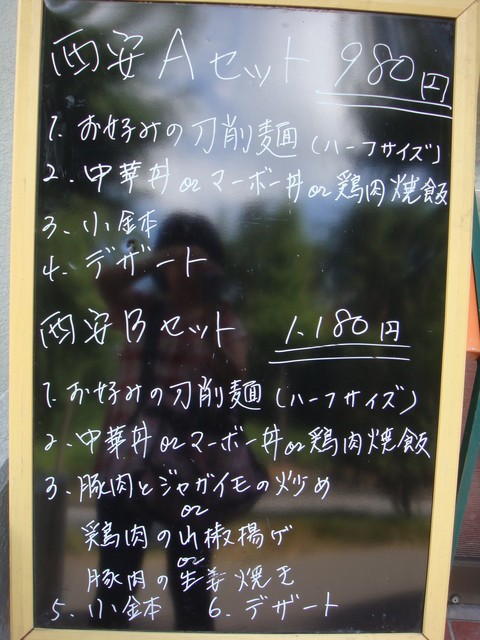 西安Aセット 980円
1. お好みの刀削麺(ハーフサイズ)
2. 中華丼orマーボー丼or鶏肉焼飯
3. 小鉢
4. デザート
西安Bセット 1.180円
1. お好みの刀削麺(ハーフサイズ)
2. 中華丼orマーボー丼or鶏肉焼飯
3. 豚肉とジャガイモの炒め
or
鶏肉の山椒揚げ
or
豚肉の生姜焼き
5. 小鉢 6. デザート